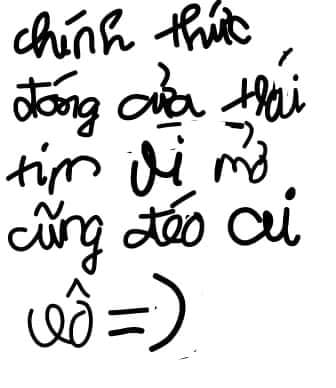 chính thức
đóng cửa trái
tim vì mở
cũng đéo ai
vô =)